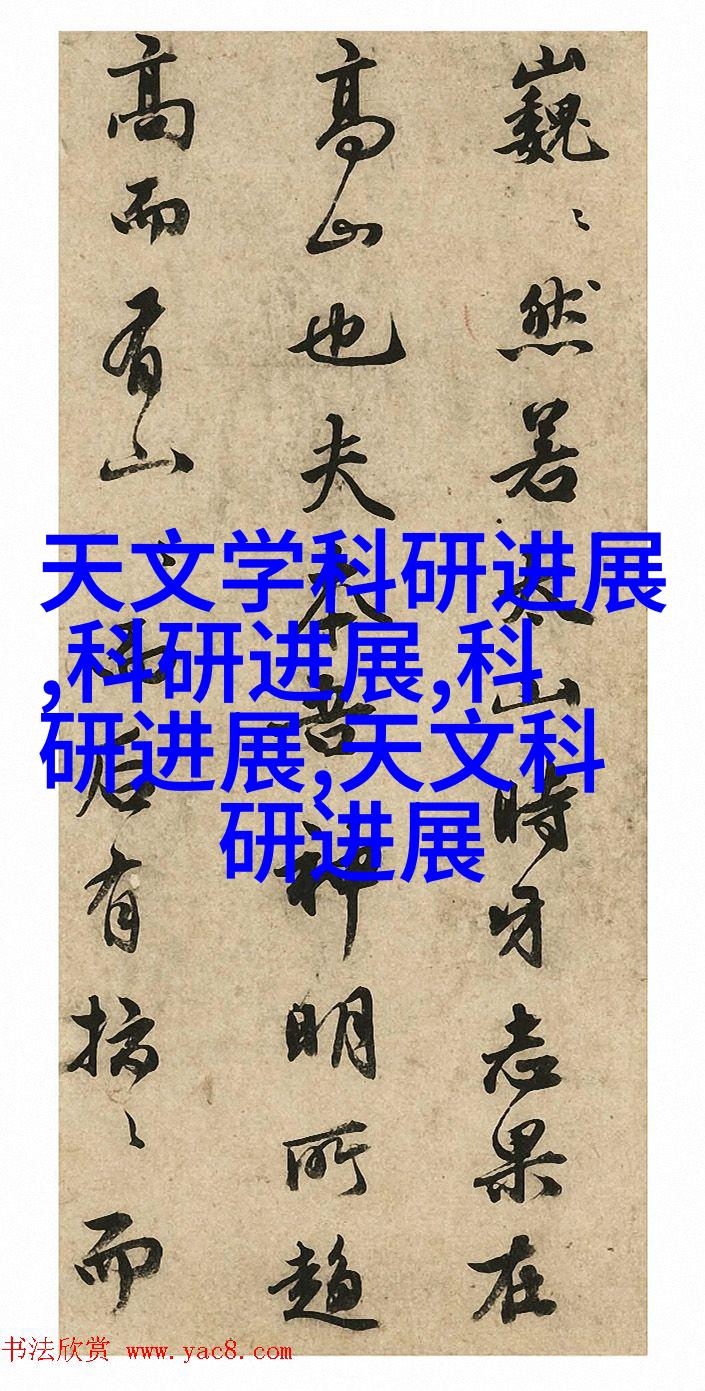 巍〻然若太山時牙志果在
高山也夫本吾神明所趨
高而有山〻而后有搞〻而
天文学科研进展
,科研进展,科
研进展,天文科
研进展
书法欣赏 www.yac8.com